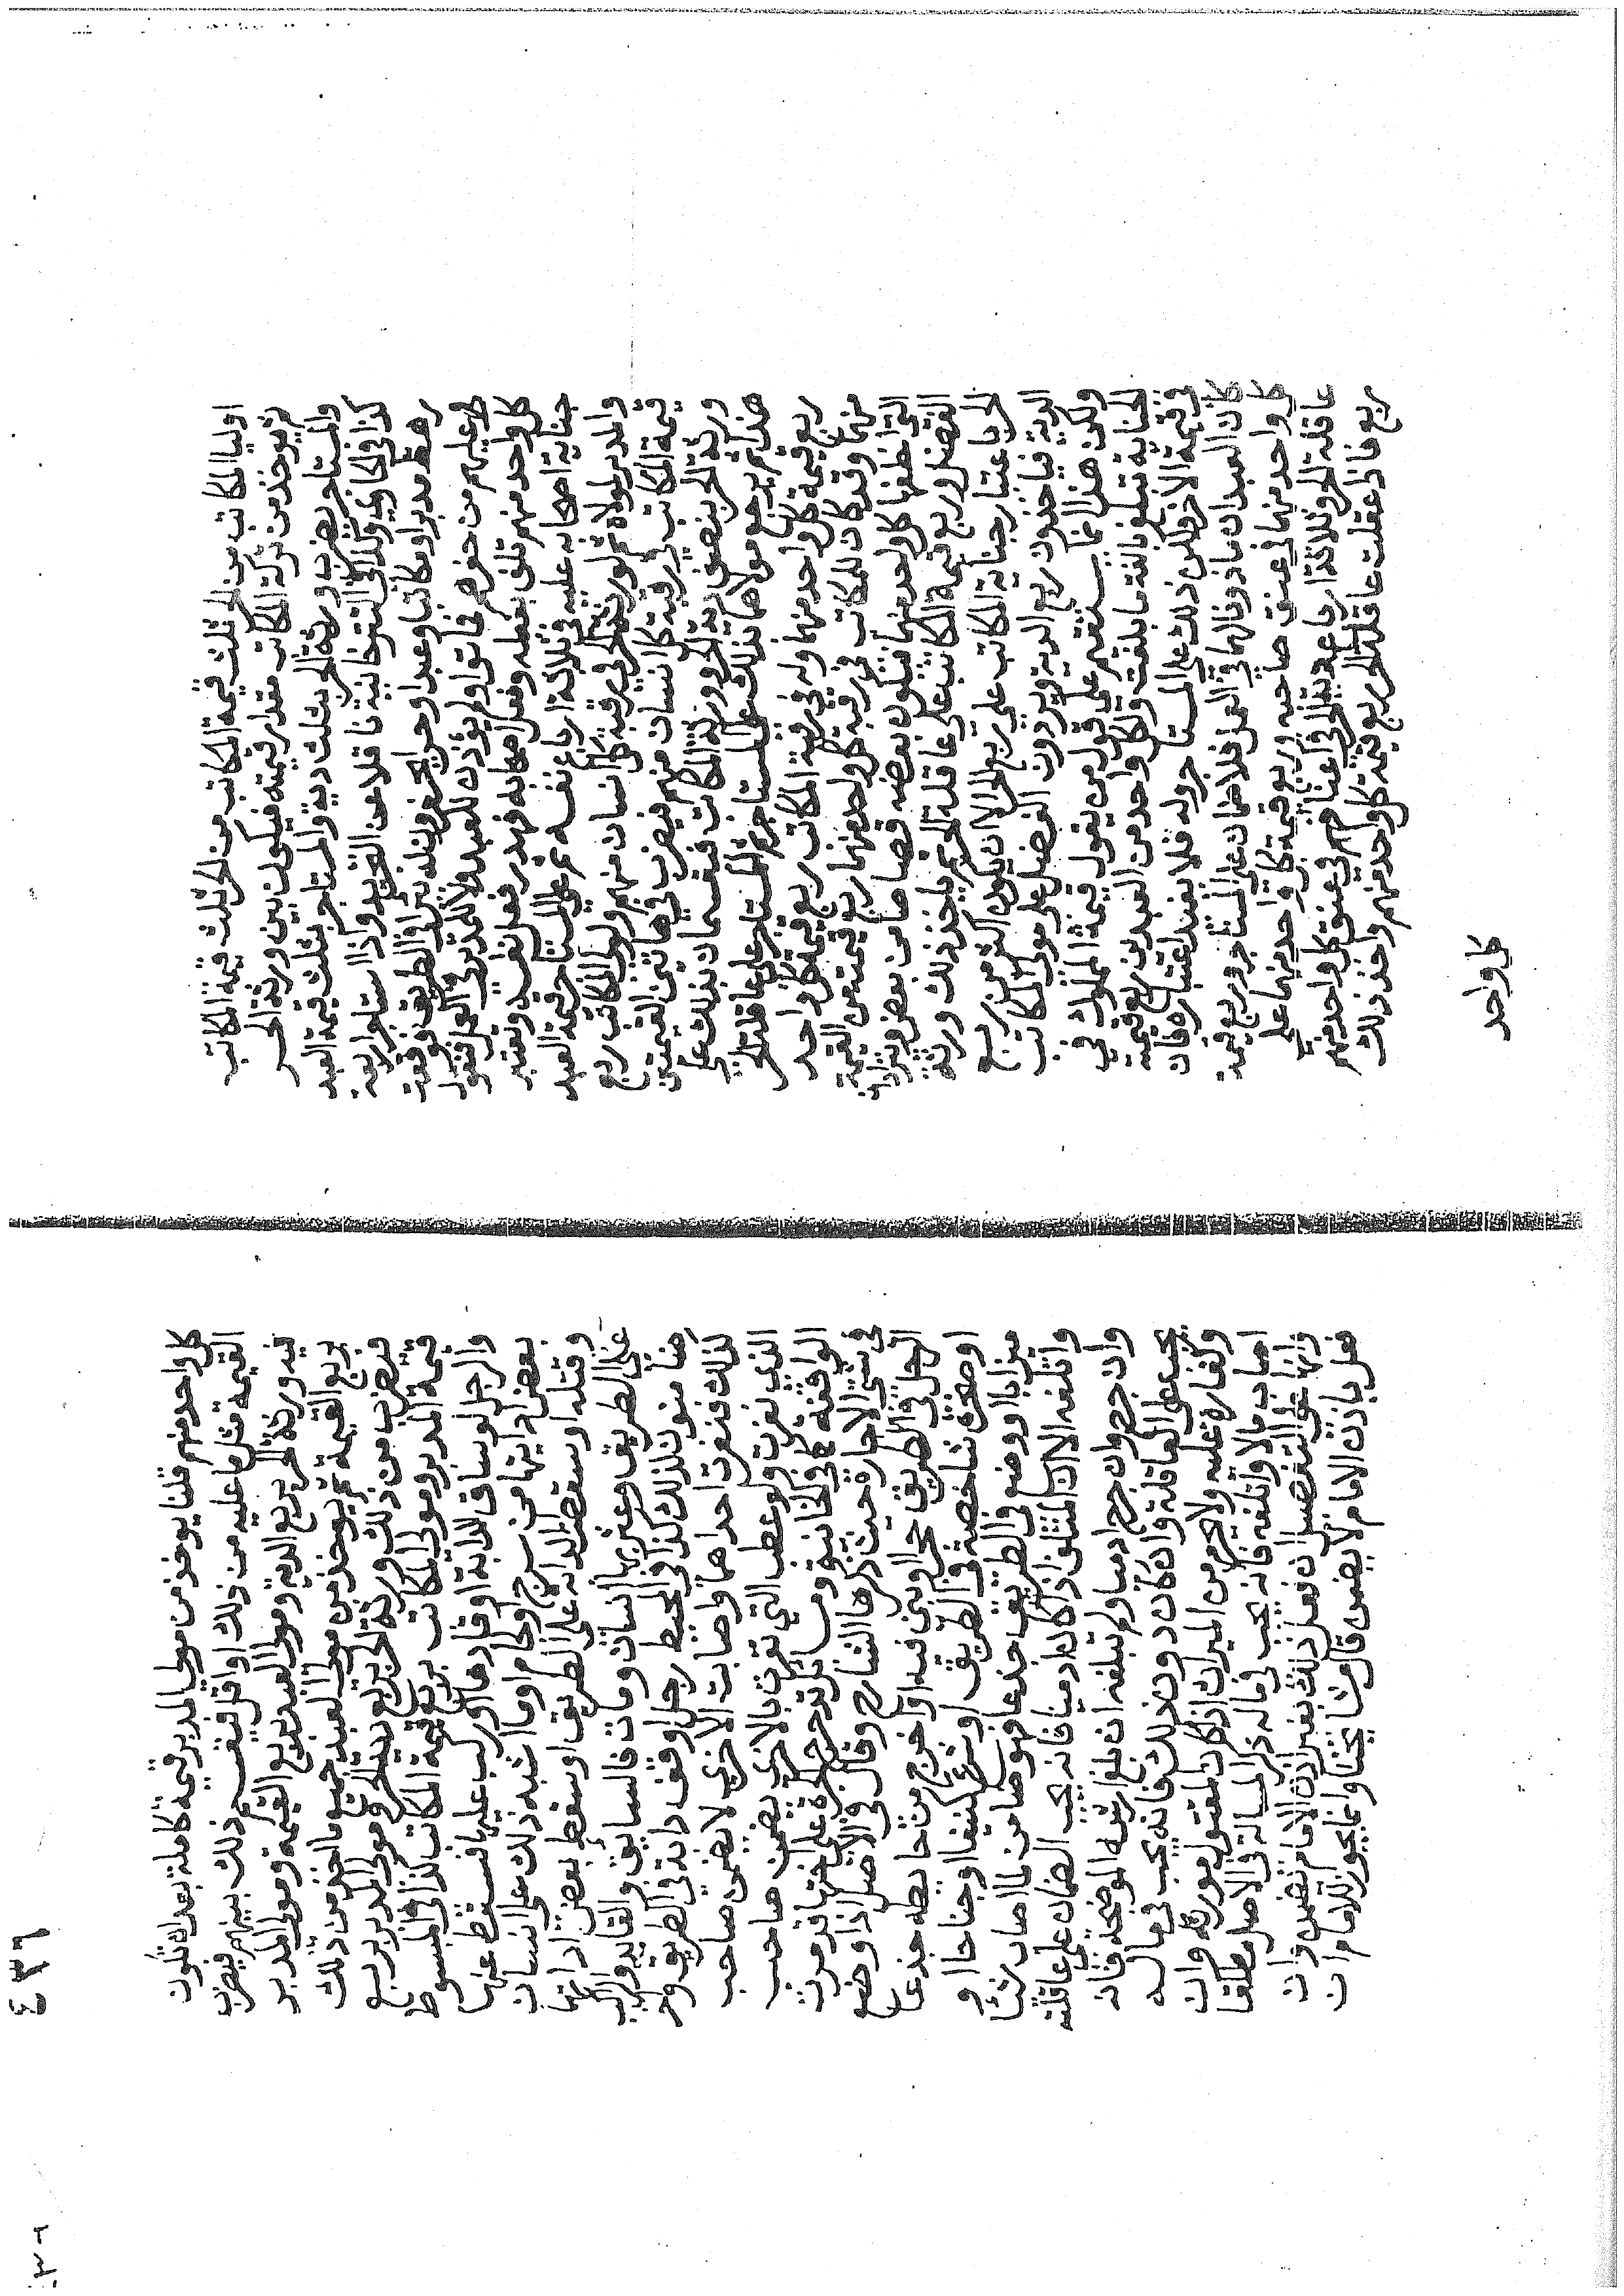 اوليا المكاتب من الحر ثلث قيمة المكاتب من الحر ثلث قيمة المكاتب
ثم يوخذ من تركة المكاتب مقدار قيمته فيكون بين ورثة الحر
والمستاجر يضرب ورثة الحر بثلث دية والمستاجر بثلث قيمة العبد
كذا في الحاوي وكذا في التترخانية ناقلا عن التجريد واذا استاجر اربعة
رهط مدبرا ومكاتبا وعبدا وحرا يحفرون له بئرا في الطريق فوقعت
عليهم من حفرهم فماتوا ولم يؤذن للعبد ولا للمدبر في العمل فنقول
كل واحد منهم تلف بفعله وفعل اصحابه فهدر فعل نفسه وتعتبر
جناية اصحابه عليه في ثلاثة ارباع نفسه ثم على المستاجر قيمة العبد
والمدبر لمولاهما ثم لورثة الحر في رقبة كل انسان منهم ولولي المكاتب ربع
قيمة المكاتب في رقبة كل انسان منهم فيضرب في هاتين القيمتين
ورثة الحر بنصف دية الحر وورثة المكاتب فيقسمان ذلك على
هذا ثم يرجع مولاهما بذلك على المستاجر ثم للمستاجر على عاقلة الحر
ربع قيمة كل واحد منهما وله في رقبة المكاتب ربع قيمة كل واحد
منهما وقد كان للمكاتب في رقبة كل واحد منهما ربع قيمته من القيمة
التي اخذها كل واحد منهما فيكون بعضه قصاصا من بعض ويترادان
الفضل وربع قيمة المكاتب على عاقلة الحر ثم ياخذ ذلك ورثة
الحر باعتبار جناية المكاتب على ربع الحر الا ان يكون اكثر من ربع
الدية فياخذون ربع الدية ويردون الفضل على مولى المكاتب
ولكن هذا انما يستقيم على قول من يقول قيمة المملوك في
الجناية تبلغ بالغة ما بلغت ولكل واحد من العبدين ربع قيمة
وقيمة الاخر ولكن ذلك على المستاجر وله فلا يفيد اعتباره فان
كان العبدان ماذونا لهما في العمل فلا ضمان على المستاجر وربع قيمة
كل واحد منهما في عنق صاحبه وربع قيمة كل واحد منهما على
عاقلة الحر وثلاثة ارباع دية الحر في اعناقهم في عنق كل واحد منهم
ربع فاذا عقلت عاقلة الحر ربع قيمة كل واحد منهم واخذ ذلك
كل واحد
٤٣٦
كل واحد منهم قلنا يوخذ من مولى المدبر قيمة كاملة بعد ان تكون
القيمة مثل ما عليه من ذلك او اقل فيقسم ذلك بينهم فيضرب
فيه ورثة الحر بربع الدية ومولى العبد بربع القيمة ومولى المدبر
بربع القيمة ثم يوخذ من مولى العبد جميع ما اخذ من ذلك
فيضرب من ذلك ورثة الحر بربع دية الحر ومولى المدبر بربع
قيمة المدبر ومولى المكاتب بربع قيمة المكاتب كذا في المبسوط
والرجل لو ساق الدابة او قادها او ركب عليها فسقط عنها
بعض اداتها من سرج او لجام او ما اشبه ذلك على انسان
وقتله او سقط الدابة على الطريق او سقط بعض اداتها
على الطريق وعثر بها انسان ومات فالسايق والقايد والراكب
ضامنون لذلك كذا في المحيط رجل اوقف دابة في الطريق واخر
كذلك فنفرت احداهما واصابت الاخرى لا يضمن صاحب
الذي نفرت ولو عطب التي نفرت بالاخرى يضمن صاحب
الواقفة كما في الخانية ومسائل تدحرج الجرة على اختها قد مرت
في شتى الاجارة حيث ذكرها الشارح وقال في الاصل اذا وضع
الرجل في الطريق حجرا او بنى فيه او اخرج من حايطه جذعا
او صخرة شاخصة في الطريق او شرع كنيفا او جناحا او
ميزابا او وضع في الطريق جذعا فهو ضامن لما اصاب شيئا
واتلفه الا ان المتلف اذا كان ادميا فانه يجب الضمان على عاقلته
وان جرح وان جرح ادميا ولم يتلفه ان بلغ ارشه الموضحة فانه
يجب على العاقلة وان كان دون ذلك فانه يجب في ماله
ولا كفارة عليه ولا يحرم من الميراث ان كان المقتول مورثه وان
اصاب مالا واتلفه فانه يجب في ماله ذكر المسالة في الاصل مطلقا
وانها على التفصيل ان فعل ذلك بغير اذن الامام يضمن وان
فعل باذن الامام لا يضمن قال مشايخنا وانما يجوز للامام ان